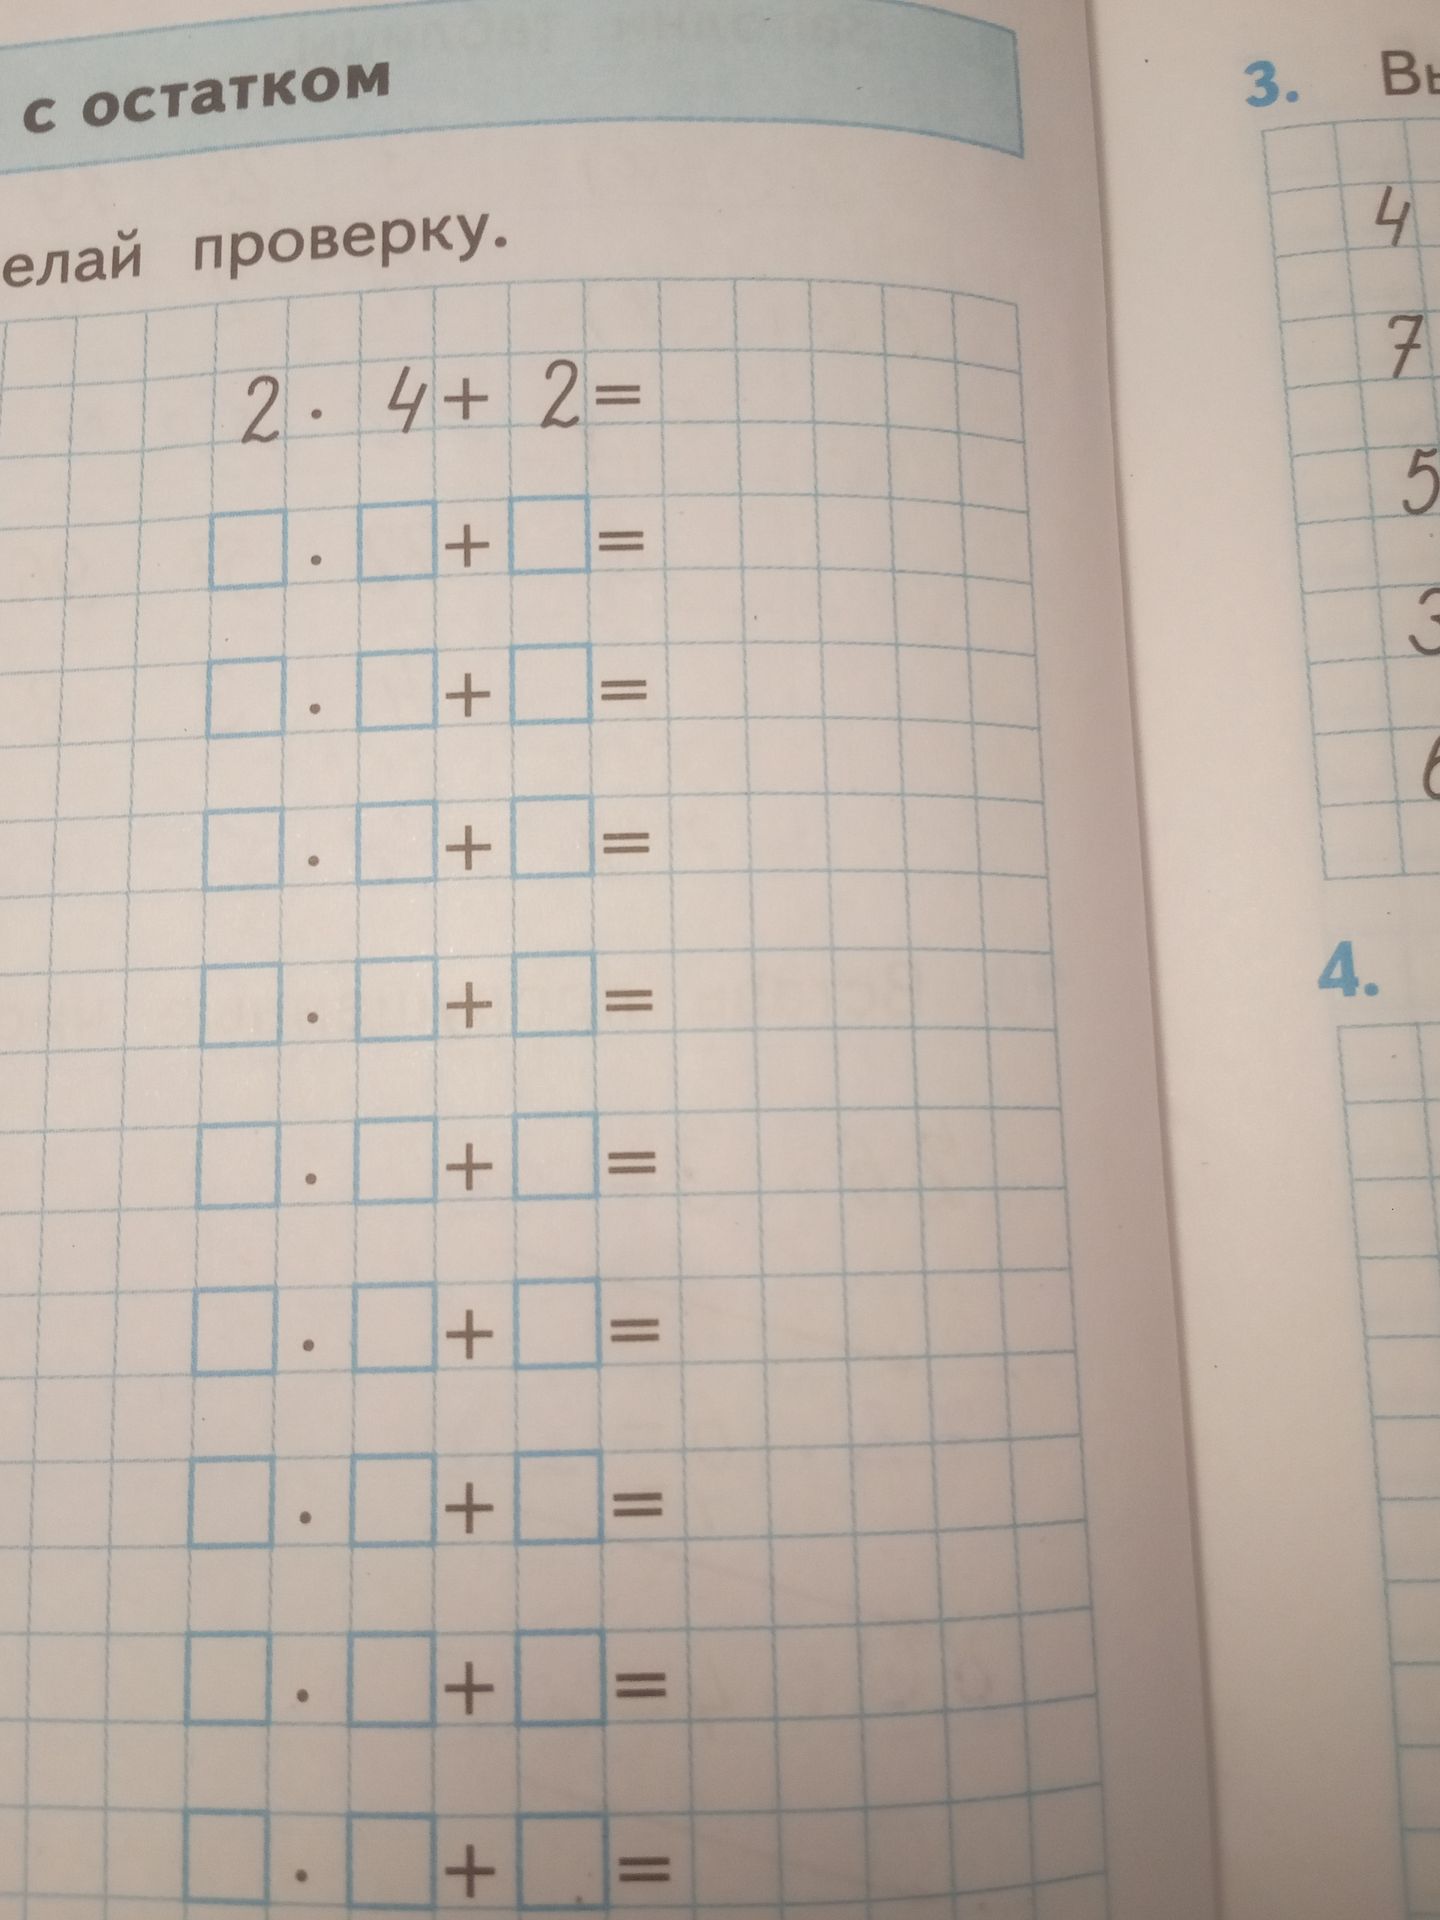 с остатком
елай проверку.
2 · 4 + 2 =
· + =
· + =
· + =
· + =
· + =
· + =
· + =
· + =
· + =
3. Вы
4
7
5
3
6
4.